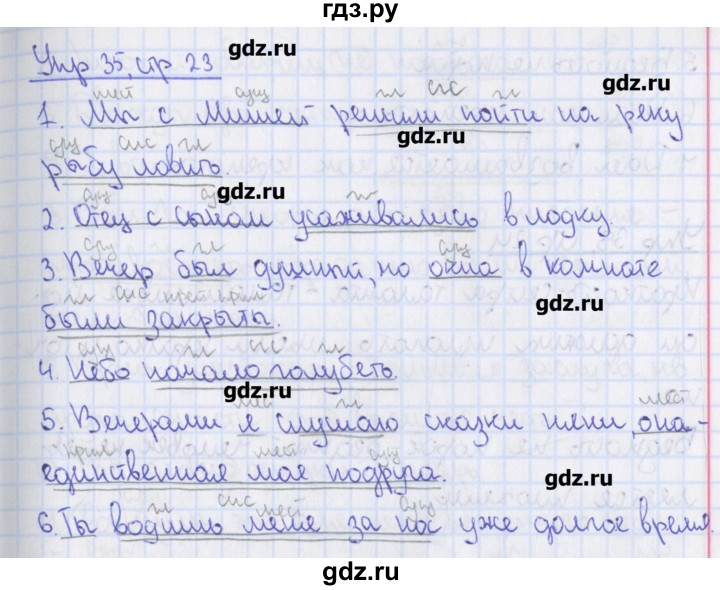 гдз.ру
Упр 35, стр 23
gdz.ru
мест сущ гл СГС гл
gdz.ru
1. Мы с Мишей решили пойти на реку
gdz.ru
сущ гл
рыбу ловить.
gdz.ru
сущ сущ гл
2. Отец с сыном усаживались в лодку.
сущ гл сущ
3. Вечер был душный, но окна в комнате
gdz.ru
гл
были закрыты.
сущ гл СГС гл
4. Небо начало голубеть.
gdz.ru
мес гл мест
5. Вечерами я слушаю сказки няни, она-
мест сущ
единственная моя подруга.
gdz.ru
гл мест сущ
6. Ты водишь меня за нос уже долгое время.
gdz.ru